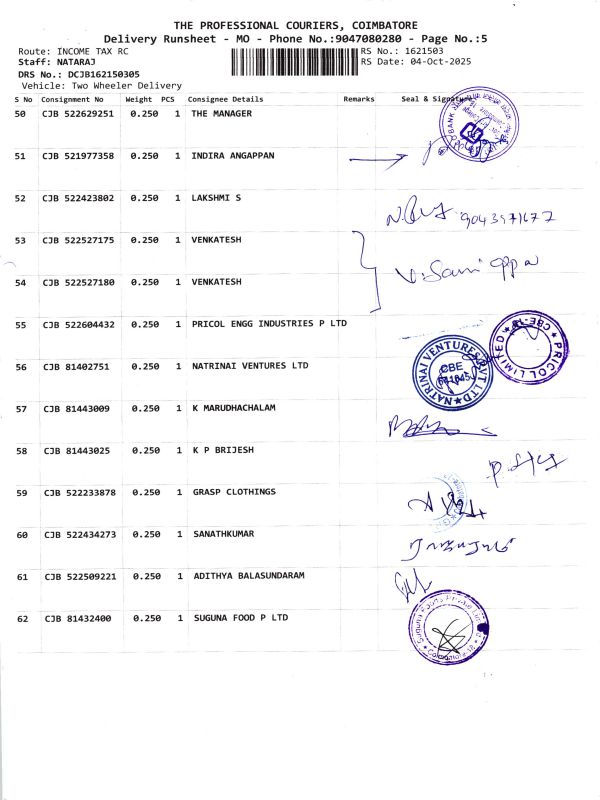 THE PROFESSIONAL COURIERS, COIMBATORE
Delivery Runsheet - MO - Phone No.:9047080280 - Page No.:5
Route: INCOME TAX RC
RS No.: 1621503
Staff: NATARAJ
RS Date: 04-Oct-2025
DRS No.: DCJB162150305
Vehicle: Two Wheeler Delivery
S No Consignment No Weight PCS Consignee Details Remarks Seal & Signature
50 CJB 522629251 0.250 1 THE MANAGER
BANK
51 CJB 521977358 0.250 1 INDIRA ANGAPPAN
52 CJB 522423802 0.250 1 LAKSHMI S
9043971677
53 CJB 522527175 0.250 1 VENKATESH
V. Samiappan
54 CJB 522527180 0.250 1 VENKATESH
55 CJB 522604432 0.250 1 PRICOL ENGG INDUSTRIES P LTD
PRICOL LIMITED ★ CBE-18 ★
56 CJB 81402751 0.250 1 NATRINAI VENTURES LTD
NATRINAI VENTURES PVT LTD ★
CBE
641045
57 CJB 81443009 0.250 1 K MARUDHACHALAM
58 CJB 81443025 0.250 1 K P BRIJESH
59 CJB 522233878 0.250 1 GRASP CLOTHINGS
60 CJB 522434273 0.250 1 SANATHKUMAR
61 CJB 522509221 0.250 1 ADITHYA BALASUNDARAM
62 CJB 81432400 0.250 1 SUGUNA FOOD P LTD
Suguna Foods Private Limited
Coimbatore-18